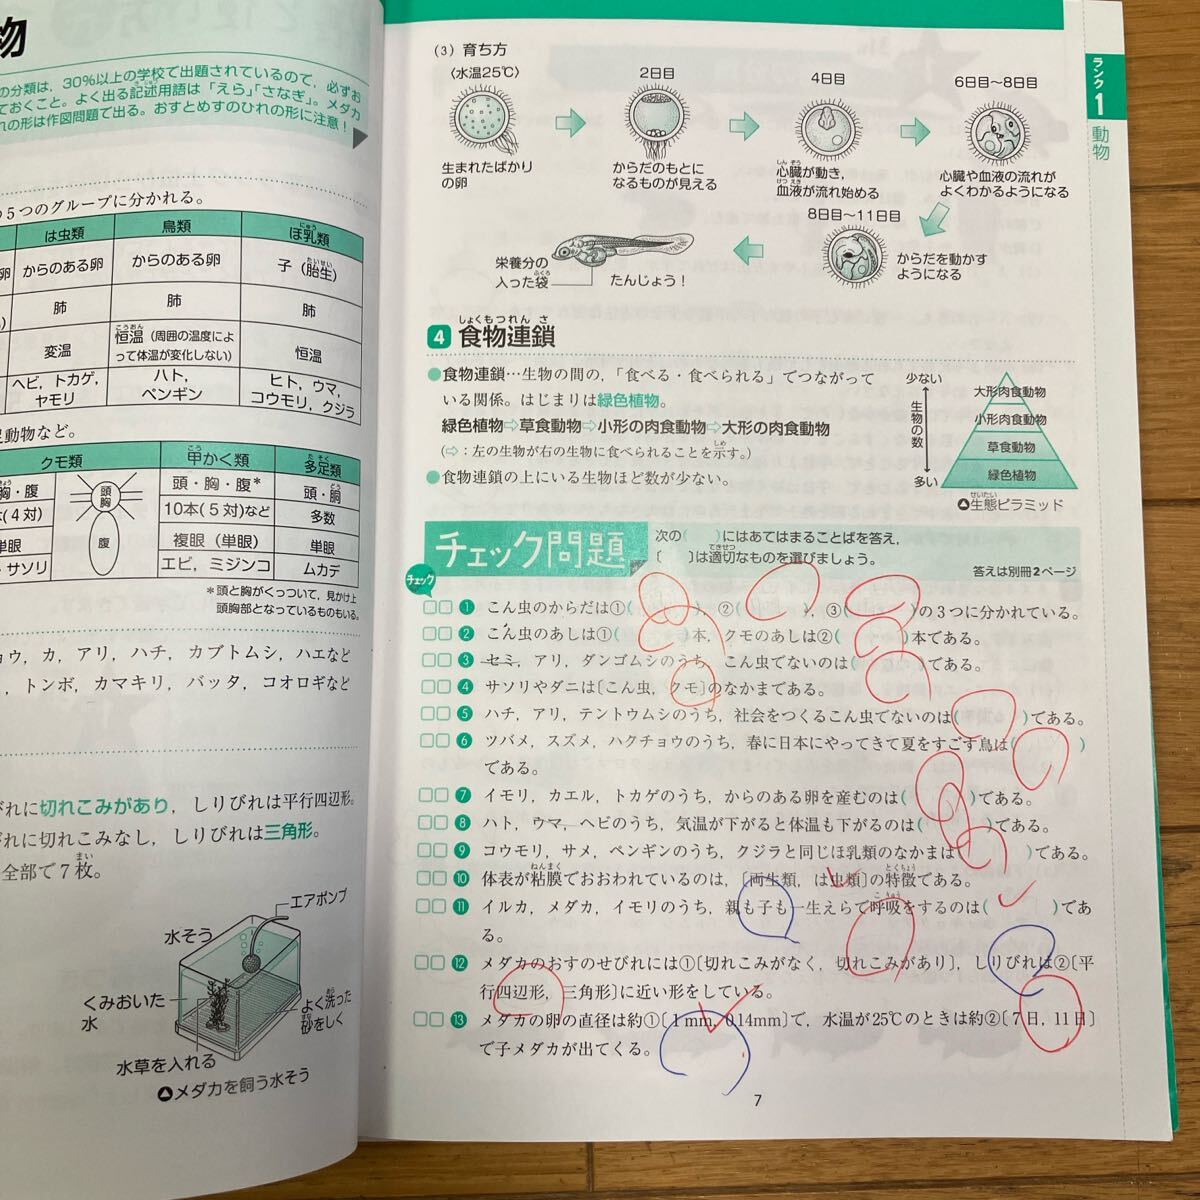 物
の分類は，30%以上の学校で出題されているので，必ずお
ておくこと。よく出る記述用語は「えら」「さなぎ」。メダカ
れの形は作図問題で出る。おすとめすのひれの形に注意！
の5つのグループに分かれる。
は虫類 鳥類 ほ乳類
卵 からのある卵 からのある卵 子（胎生）
肺 肺 肺
変温 恒温（周囲の温度によって体温が変化しない） 恒温
ヘビ，トカゲ，ヤモリ ハト，ペンギン ヒト，ウマ，コウモリ，クジラ
足動物など。
クモ類 甲かく類 多足類
胸・腹 頭胸 腹 頭・胸・腹* 頭・胴
(4対) 10本(5対)など 多数
単眼 複眼（単眼） 単眼
・サソリ エビ，ミジンコ ムカデ
*頭と胸がくっついて，見かけ上
頭胸部となっているものもいる。
ョウ，カ，アリ，ハチ，カブトムシ，ハエなど
，トンボ，カマキリ，バッタ，コオロギなど
びれに切れこみがあり，しりびれは平行四辺形。
びれに切れこみなし，しりびれは三角形。
全部で7枚。
エアポンプ
水そう
くみおいた
水
よく洗った
砂をしく
水草を入れる
▲メダカを飼う水そう
(3) 育ち方
〈水温25℃〉 2日目 4日目 6日目～8日目
生まれたばかり
の卵
からだのもとに
なるものが見える
心臓が動き，
血液が流れ始める
心臓や血液の流れが
よくわかるようになる
8日目～11日目
からだを動かす
ようになる
栄養分の
入った袋
たんじょう！
4 食物連鎖
●食物連鎖…生物の間の，「食べる・食べられる」でつながって
いる関係。はじまりは緑色植物。
緑色植物⇨草食動物⇨小形の肉食動物⇨大形の肉食動物
(⇨：左の生物が右の生物に食べられることを示す。)
●食物連鎖の上にいる生物ほど数が少ない。
少ない
生物の数
多い
大形肉食動物
小形肉食動物
草食動物
緑色植物
▲生態ピラミッド
チェック問題
次の( )にはあてはまることばを答え，
〔 〕は適切なものを選びましょう。
答えは別冊2ページ
チェック
□□ 1 こん虫のからだは①( )，②( )，③( )の3つに分かれている。
□□ 2 こん虫のあしは①( )本，クモのあしは②( )本である。
□□ 3 セミ，アリ，ダンゴムシのうち，こん虫でないのは( )である。
□□ 4 サソリやダニは〔こん虫，クモ〕のなかまである。
□□ 5 ハチ，アリ，テントウムシのうち，社会をつくるこん虫でないのは( )である。
□□ 6 ツバメ，スズメ，ハクチョウのうち，春に日本にやってきて夏をすごす鳥は( )
である。
□□ 7 イモリ，カエル，トカゲのうち，からのある卵を産むのは( )である。
□□ 8 ハト，ウマ，ヘビのうち，気温が下がると体温も下がるのは( )である。
□□ 9 コウモリ，サメ，ペンギンのうち，クジラと同じほ乳類のなかまは( )である。
□□ 10 体表が粘膜でおおわれているのは，〔両生類，は虫類〕の特徴である。
□□ 11 イルカ，メダカ，イモリのうち，親も子も一生えらで呼吸をするのは( )であ
る。
□□ 12 メダカのおすのせびれには①〔切れこみがなく，切れこみがあり〕，しりびれは②〔平
行四辺形，三角形〕に近い形をしている。
□□ 13 メダカの卵の直径は約①〔1mm，0.14mm〕で，水温が25℃のときは約②〔7日，11日〕
で子メダカが出てくる。
7
ランク
1
動物